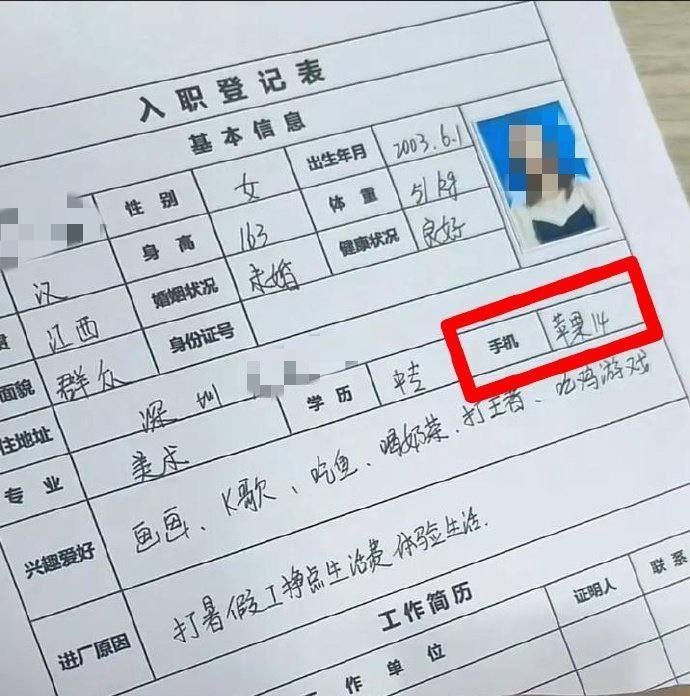 入职登记表
基本信息
性别 女 出生年月 2003.6.1
汉 身高 163 体重 51kg
江西 婚姻状况 未婚 健康状况 良好
面貌 群众 身份证号
住址 深圳 学历 中专 手机 苹果14
专业 美术
兴趣爱好 画画、K歌、吃鱼、喝奶茶、打王者、吃鸡游戏
进厂原因 打暑假工挣点生活费体验生活.
工作简历
工作单位 证明人 联系